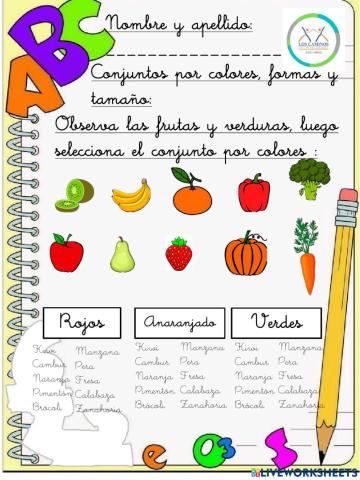 ABC
Nombre y apellido:
LOS CAMINOS
Conjuntos por colores, formas y
tamaño:
Observa las frutas y verduras, luego
selecciona el conjunto por colores :
Rojos
Anaranjado
Verdes
Kiwi Manzana
Cambur Pera
Naranja Fresa
Pimentón Calabaza
Brócoli Zanahoria
Kiwi Manzana
Cambur Pera
Naranja Fresa
Pimentón Calabaza
Brócoli Zanahoria
Kiwi Manzana
Cambur Pera
Naranja Fresa
Pimentón Calabaza
Brócoli Zanahoria
LIVEWORKSHEETS